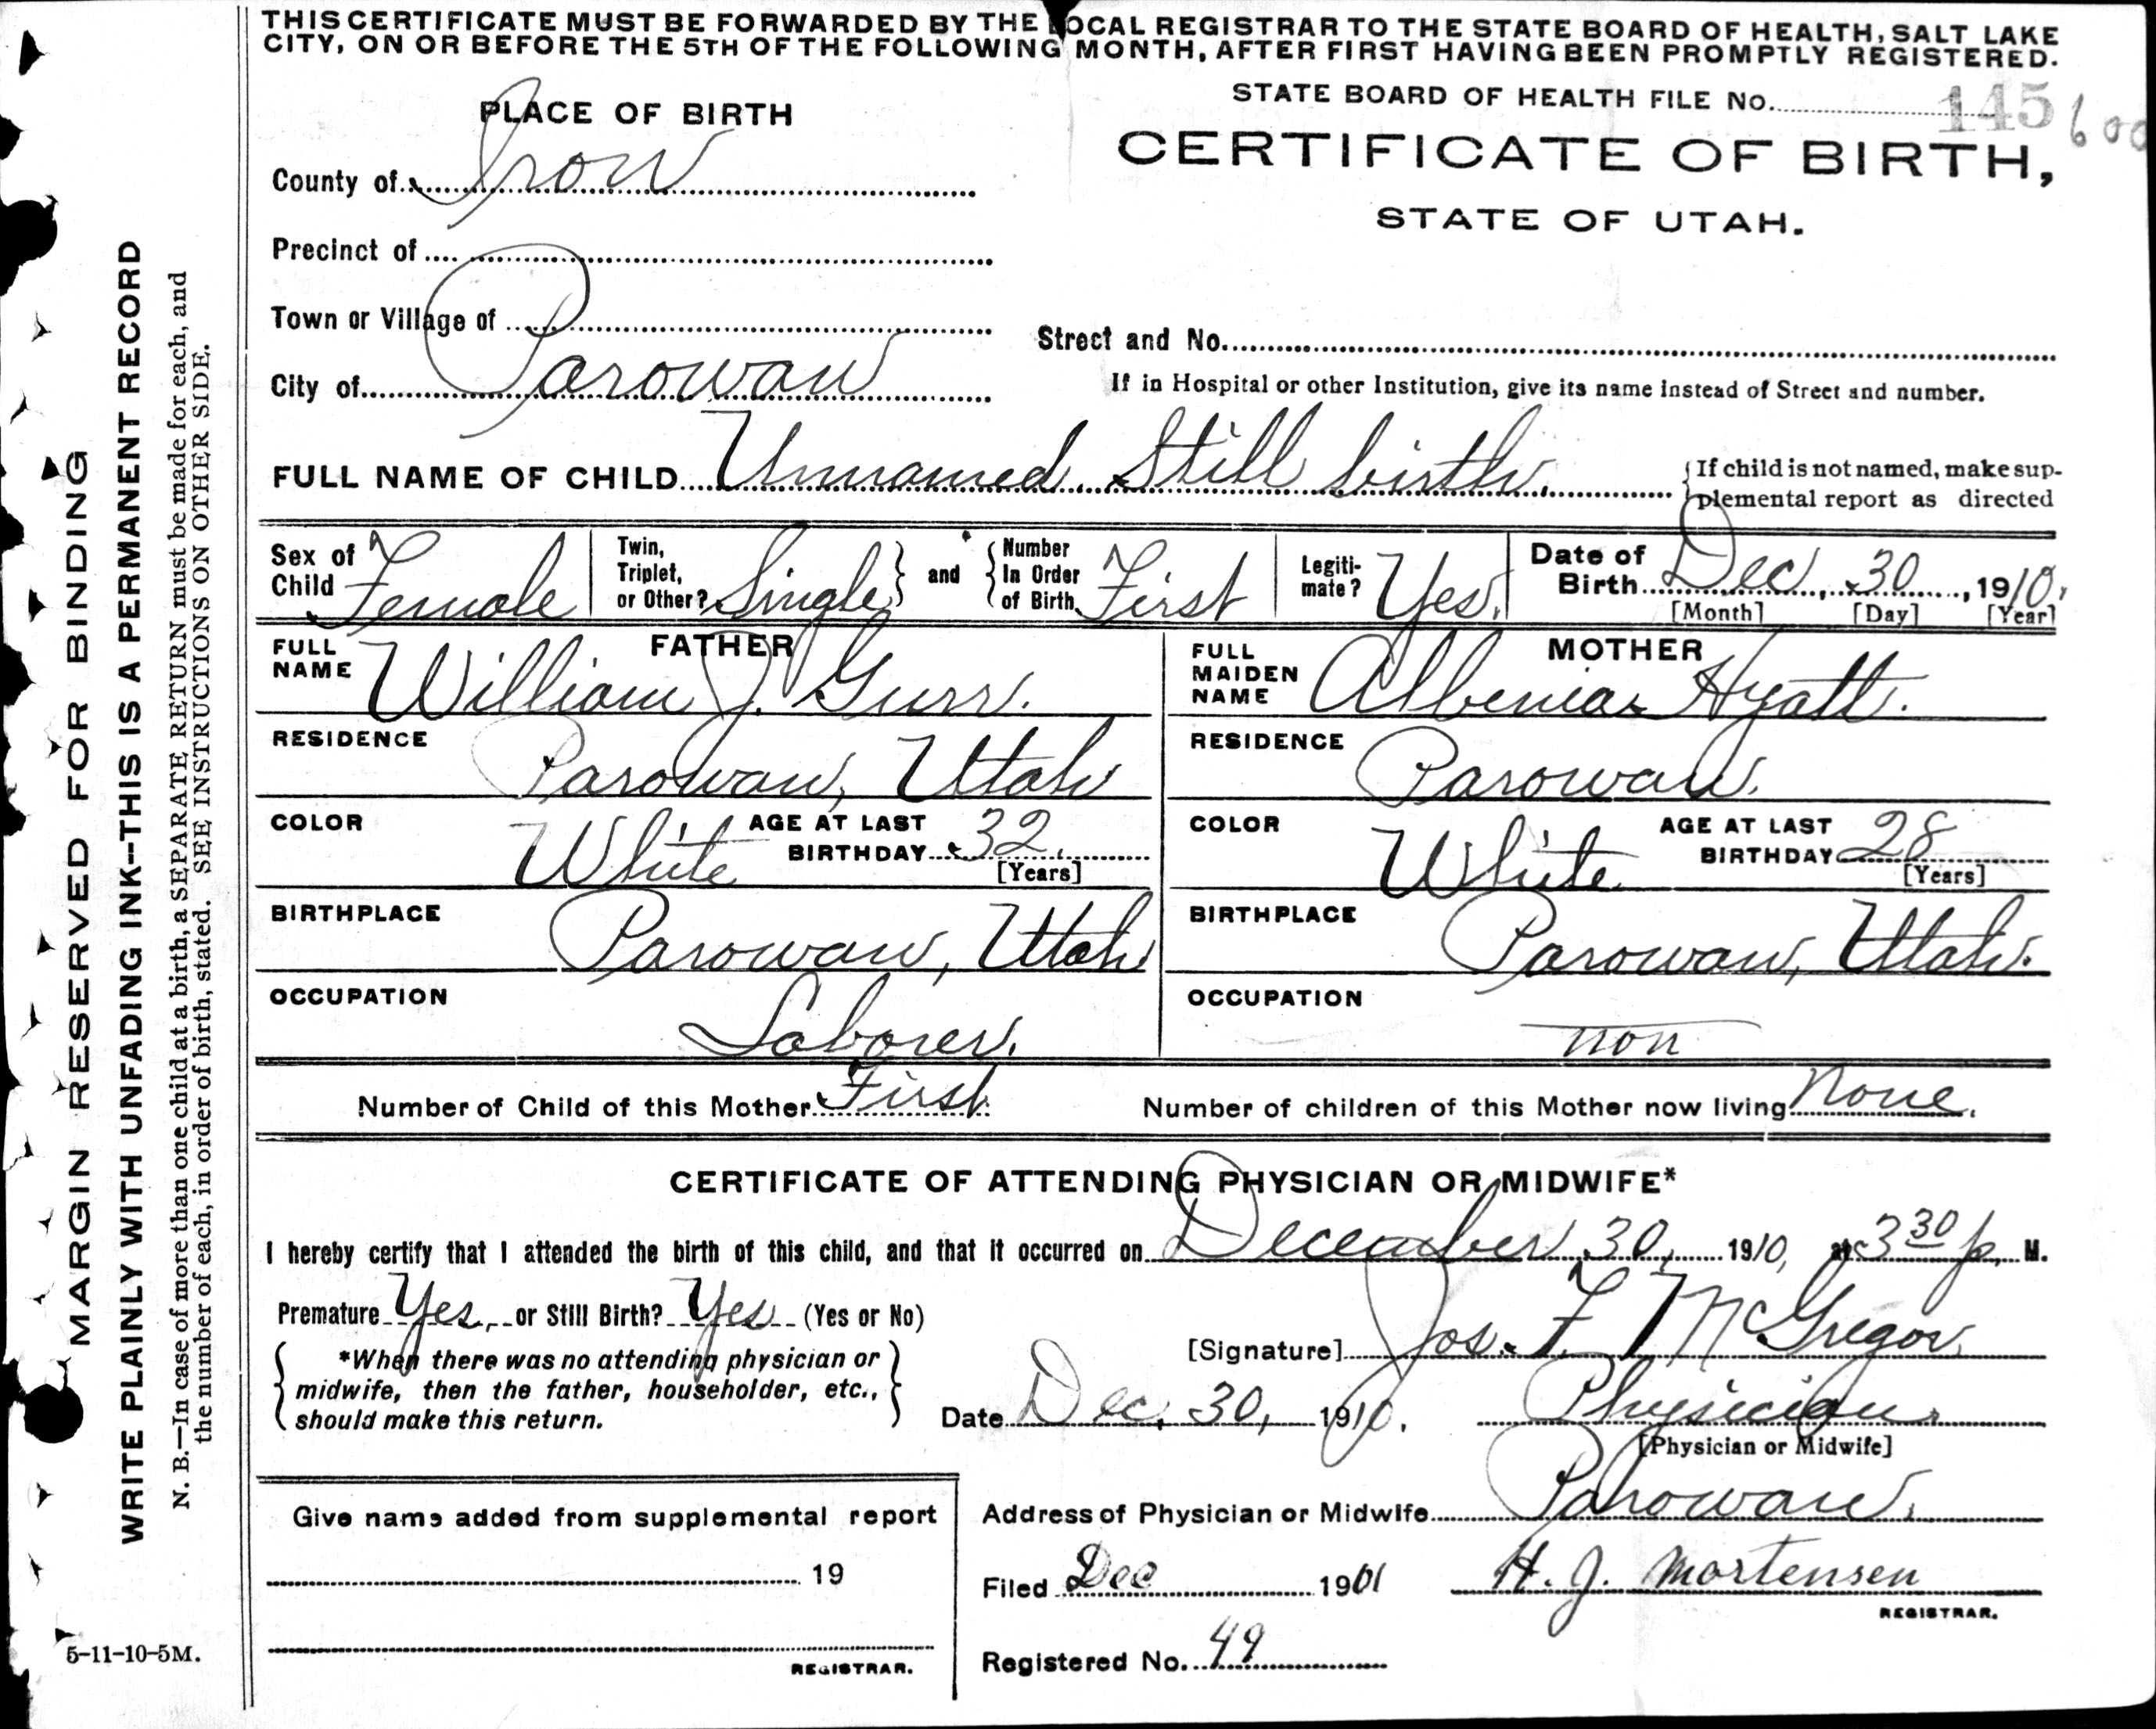 THIS CERTIFICATE MUST BE FORWARDED BY THE LOCAL REGISTRAR TO THE STATE BOARD OF HEALTH, SALT LAKE
CITY, ON OR BEFORE THE 5TH OF THE FOLLOWING MONTH, AFTER FIRST HAVING BEEN PROMPTLY REGISTERED.
PLACE OF BIRTH
STATE BOARD OF HEALTH FILE No. 145 600
CERTIFICATE OF BIRTH,
STATE OF UTAH.
County of Iron
Precinct of
Town or Village of
Street and No.
City of Parowan
If in Hospital or other Institution, give its name instead of Street and number.
FULL NAME OF CHILD Unnamed. Still birth.
{If child is not named, make sup-
plemental report as directed
Sex of Child Female
Twin, Triplet, or Other? Single } and { Number In Order of Birth First
Legiti-mate? Yes.
Date of Birth Dec., 30, 1910.
[Month] [Day] [Year]
FATHER
FULL NAME William J. Gurr.
RESIDENCE Parowan, Utah
COLOR White AGE AT LAST BIRTHDAY 32.
[Years]
BIRTHPLACE Parowan, Utah
OCCUPATION Laborer.
MOTHER
FULL MAIDEN NAME Albenia Hyatt.
RESIDENCE Parowan.
COLOR White AGE AT LAST BIRTHDAY 28
[Years]
BIRTHPLACE Parowan, Utah.
OCCUPATION non
Number of Child of this Mother First. Number of children of this Mother now living None.
CERTIFICATE OF ATTENDING PHYSICIAN OR MIDWIFE*
I hereby certify that I attended the birth of this child, and that it occurred on December 30, 1910, at 3 30 p. M.
Premature Yes, or Still Birth? Yes (Yes or No)
[Signature] Jos. F. McGregor
{ *When there was no attending physician or
midwife, then the father, householder, etc.,
should make this return. }
Date Dec. 30, 1910. Physician.
[Physician or Midwife]
Address of Physician or Midwife Parowan.
Give name added from supplemental report
19
REGISTRAR.
Filed Dec 1901 H. J. Mortensen
REGISTRAR.
Registered No. 49
5-11-10-5M.
MARGIN RESERVED FOR BINDING
WRITE PLAINLY WITH UNFADING INK--THIS IS A PERMANENT RECORD
N. B.—In case of more than one child at a birth, a SEPARATE RETURN must be made for each, and
the number of each, in order of birth, stated. SEE INSTRUCTIONS ON OTHER SIDE.